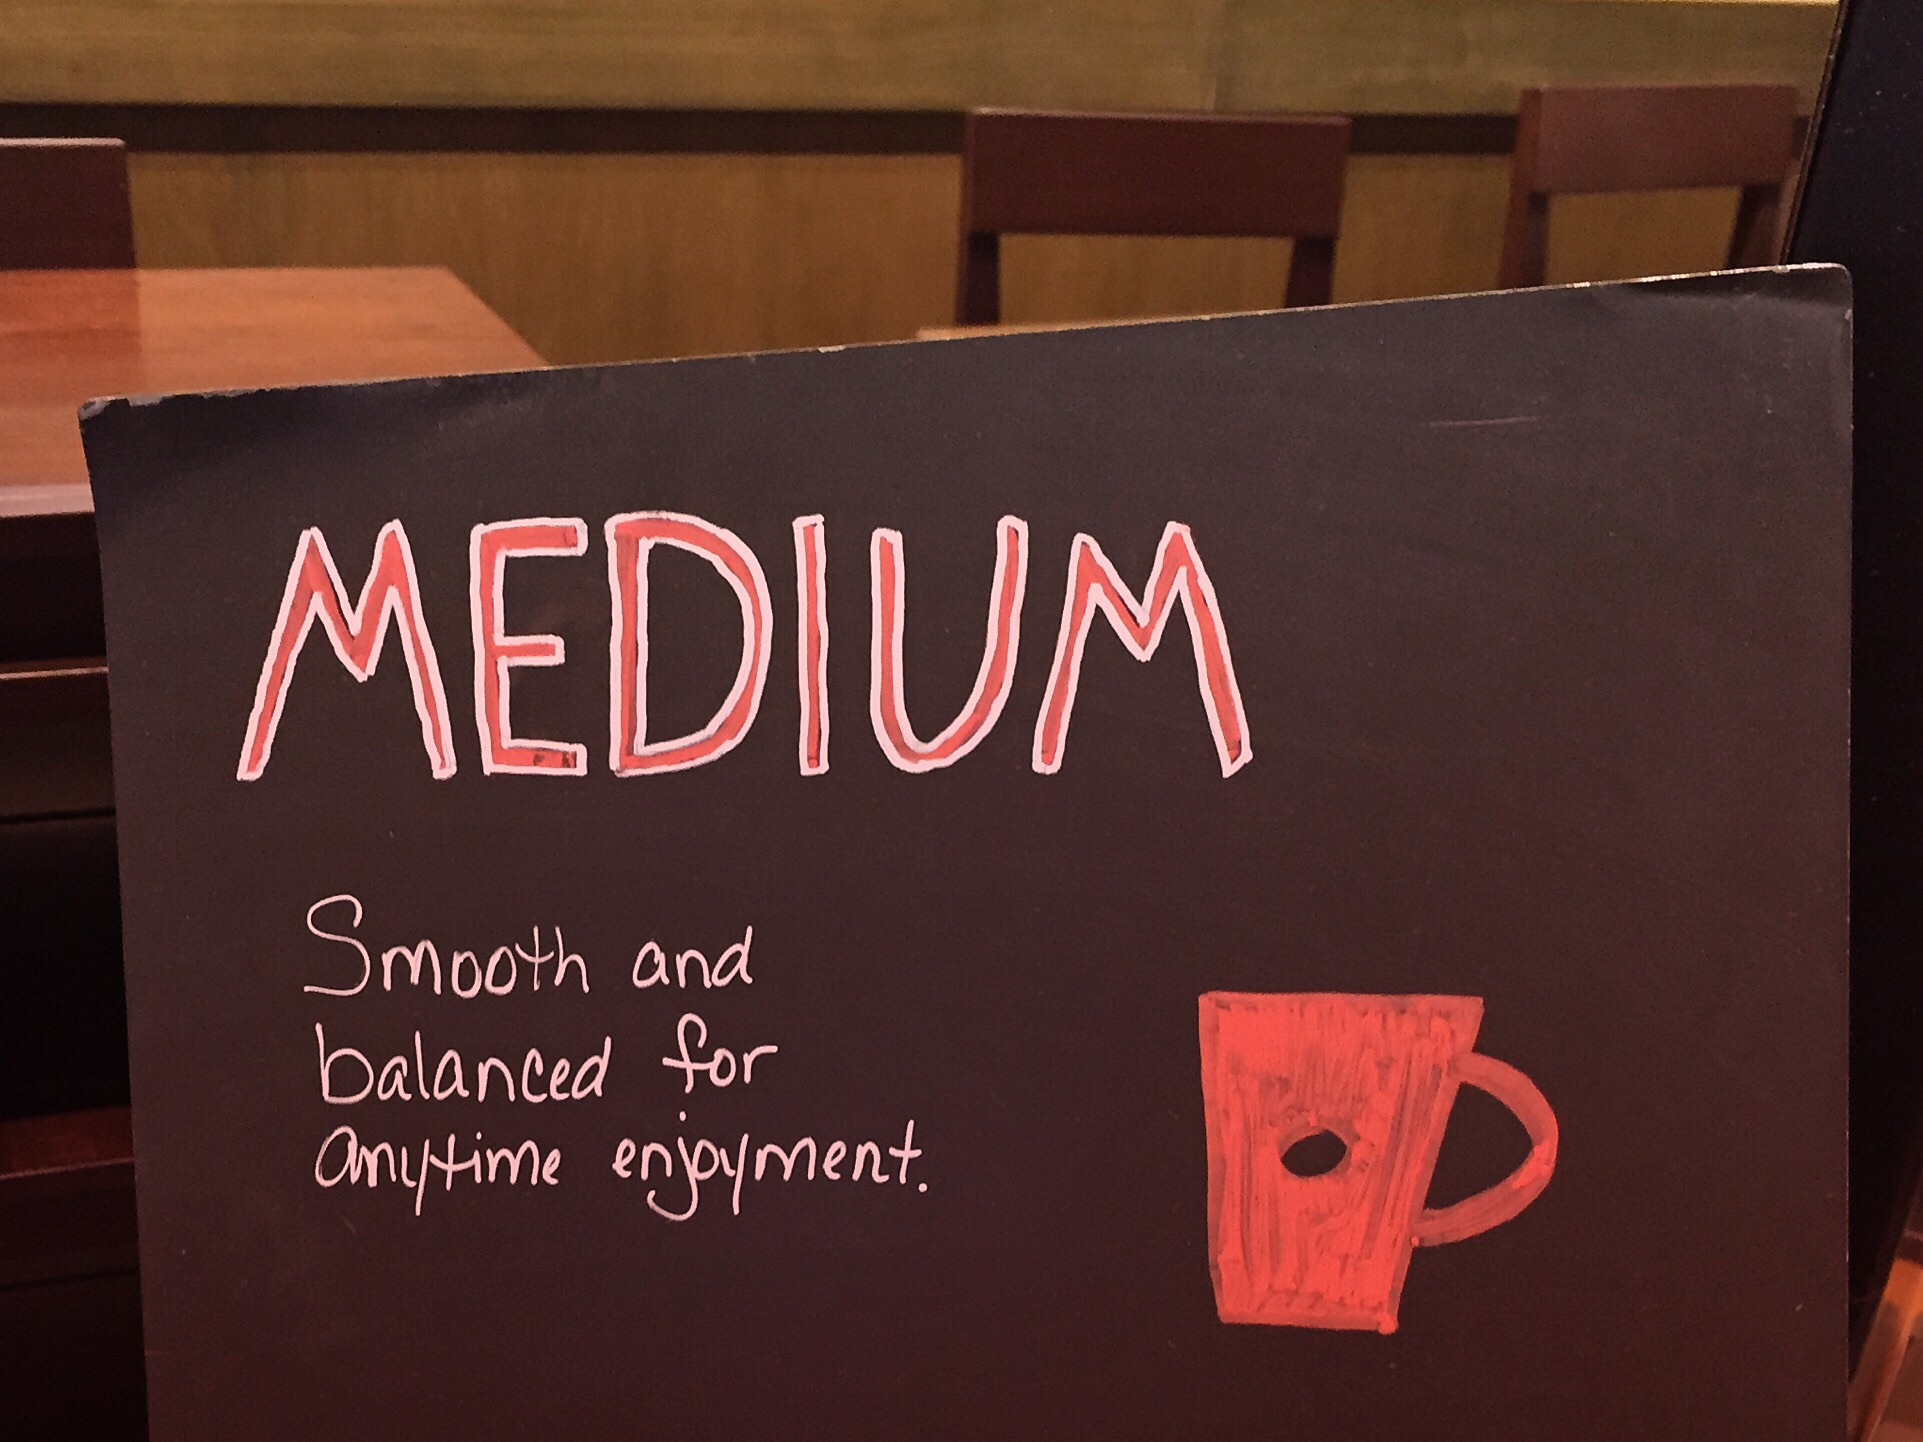 MEDIUM
Smooth and
balanced for
anytime enjoyment.